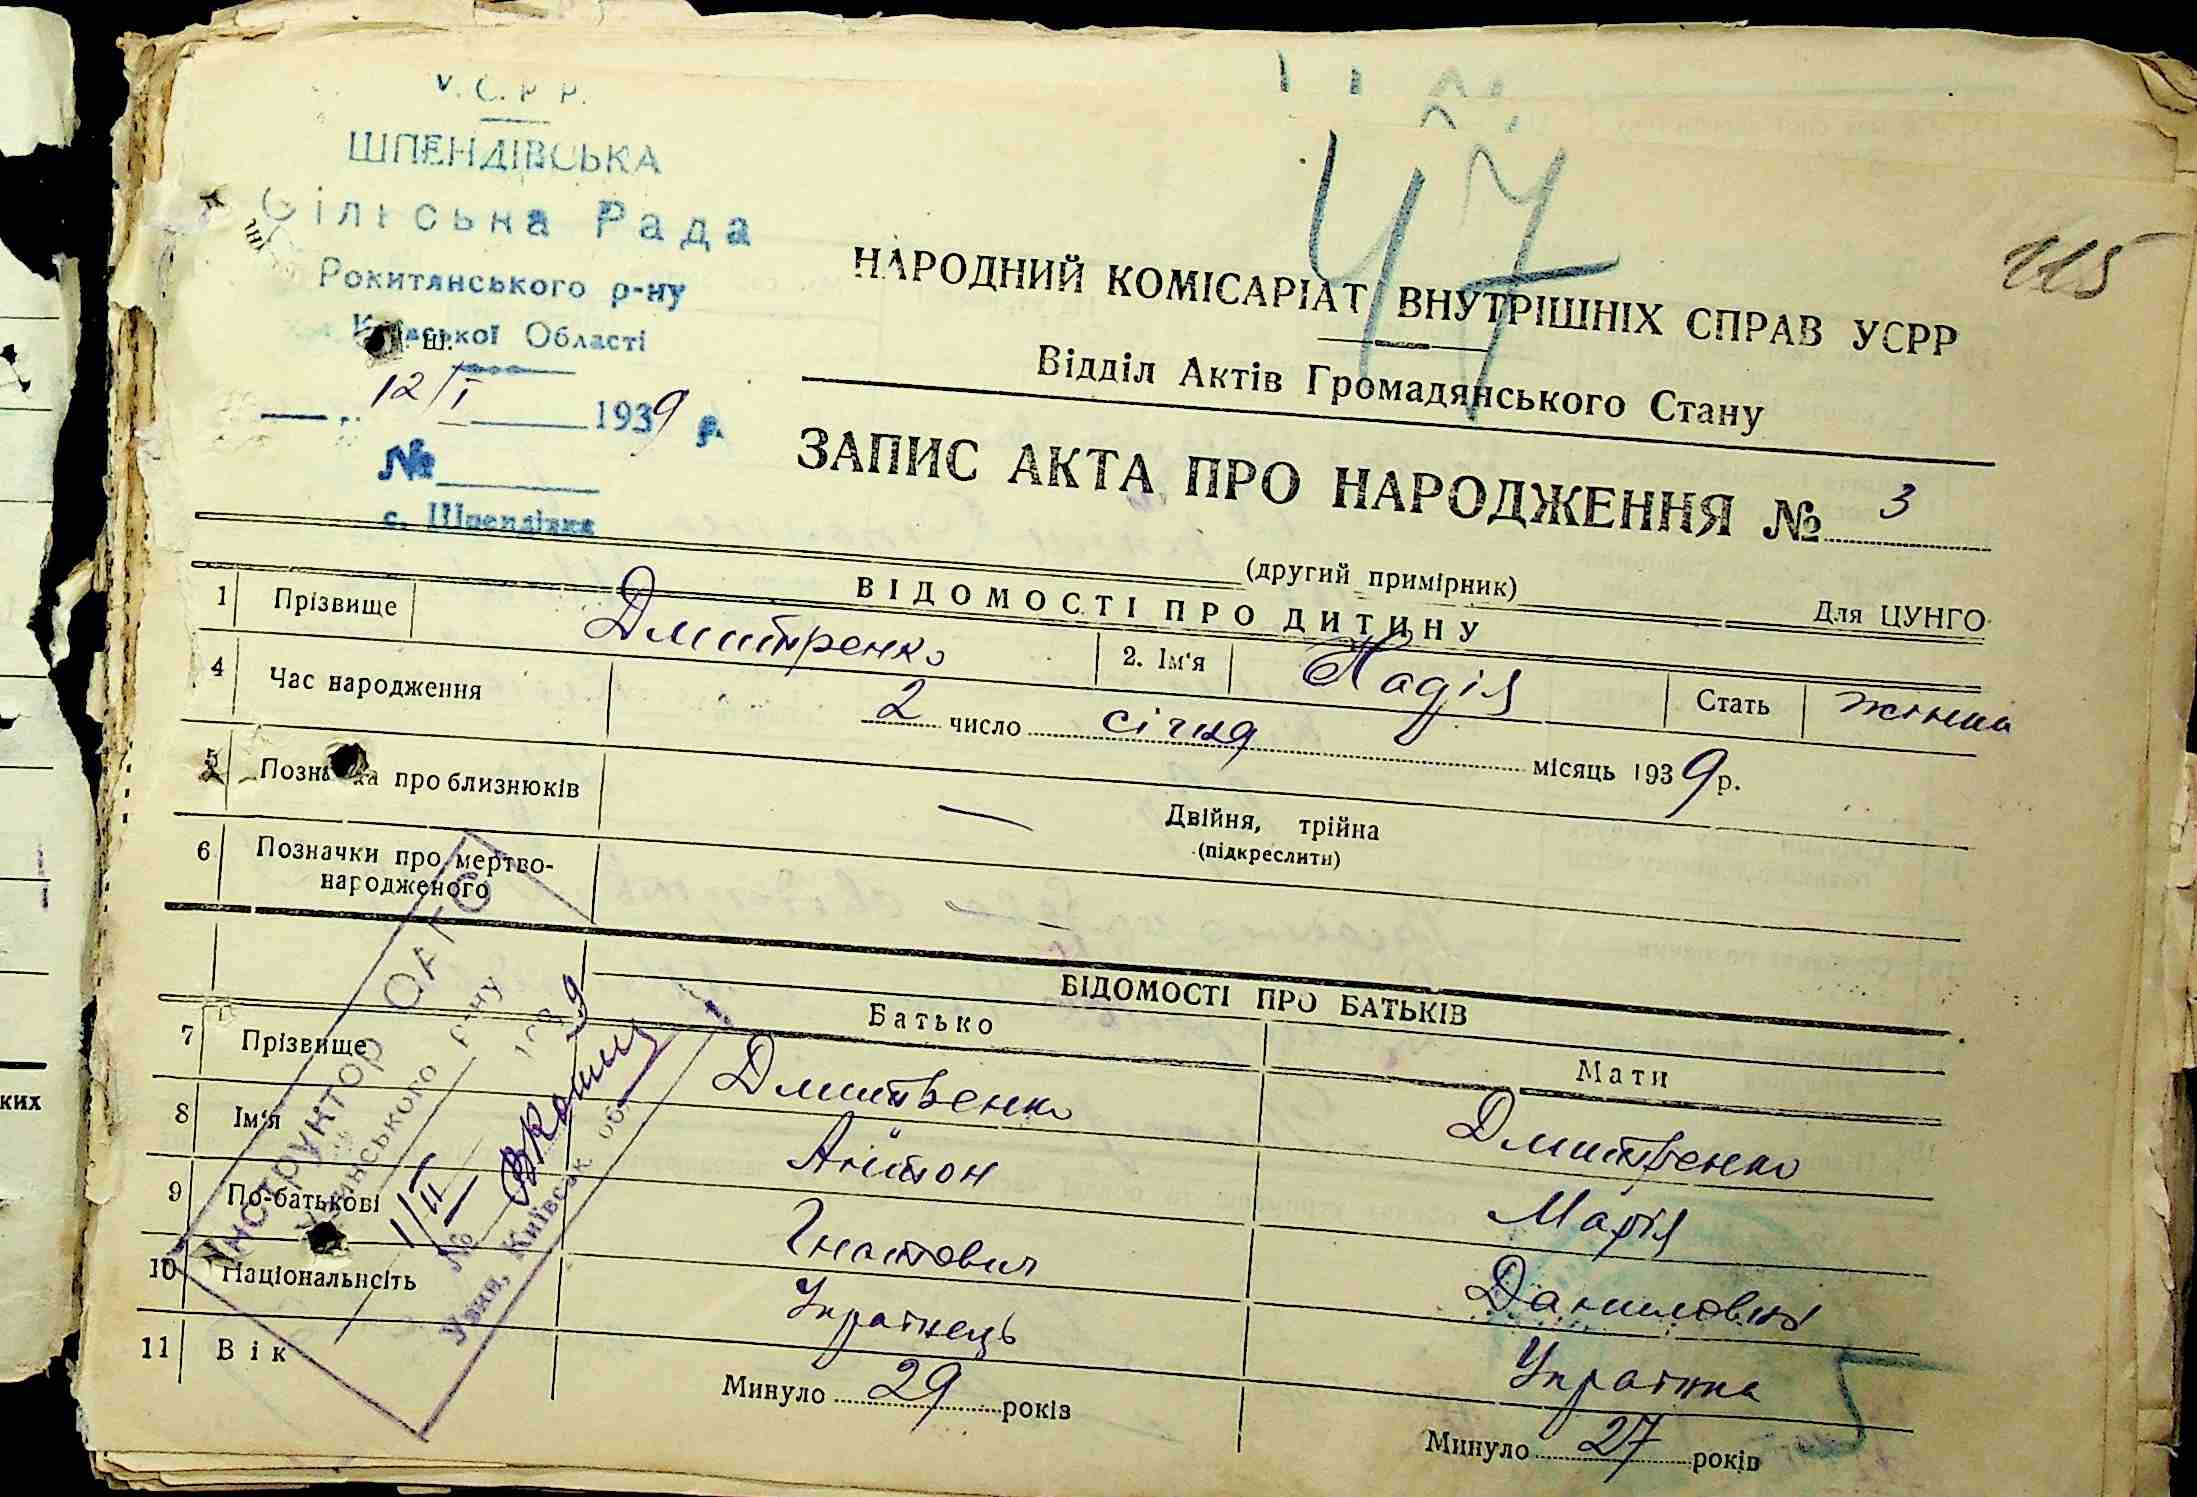 У.С.Р.Р.
ШПЕНДІВСЬКА
Сільська Рада
Рокитянського р-ну
Київської Області
12/I 1939 р.
№
с. Шпендівка
47
115
НАРОДНИЙ КОМІСАРІАТ ВНУТРІШНІХ СПРАВ УСРР
Відділ Актів Громадянського Стану
ЗАПИС АКТА ПРО НАРОДЖЕННЯ № 3
(другий примірник)
Для ЦУНГО
ВІДОМОСТІ ПРО ДИТИНУ
1 Прізвище Дмитренко 2. Ім'я Надія Стать жінка
4 Час народження 2 число січня місяць 1939 р.
5 Позначка про близнюків — Двійня, трійна
(підкреслити)
6 Позначки про мертво-
народженого —
ВІДОМОСТІ ПРО БАТЬКІВ
Батько Мати
7 Прізвище Дмитренко Дмитренко
8 Ім'я Антон Марія
9 По-батькові Гнатович Даниловна
10 Національнсіть Українець Українка
11 Вік Минуло 29 років Минуло 27 років
Інструктор ОАГС
Узинського р-ну
1/II 1939
№
Узин, Київськ. обл.
ких